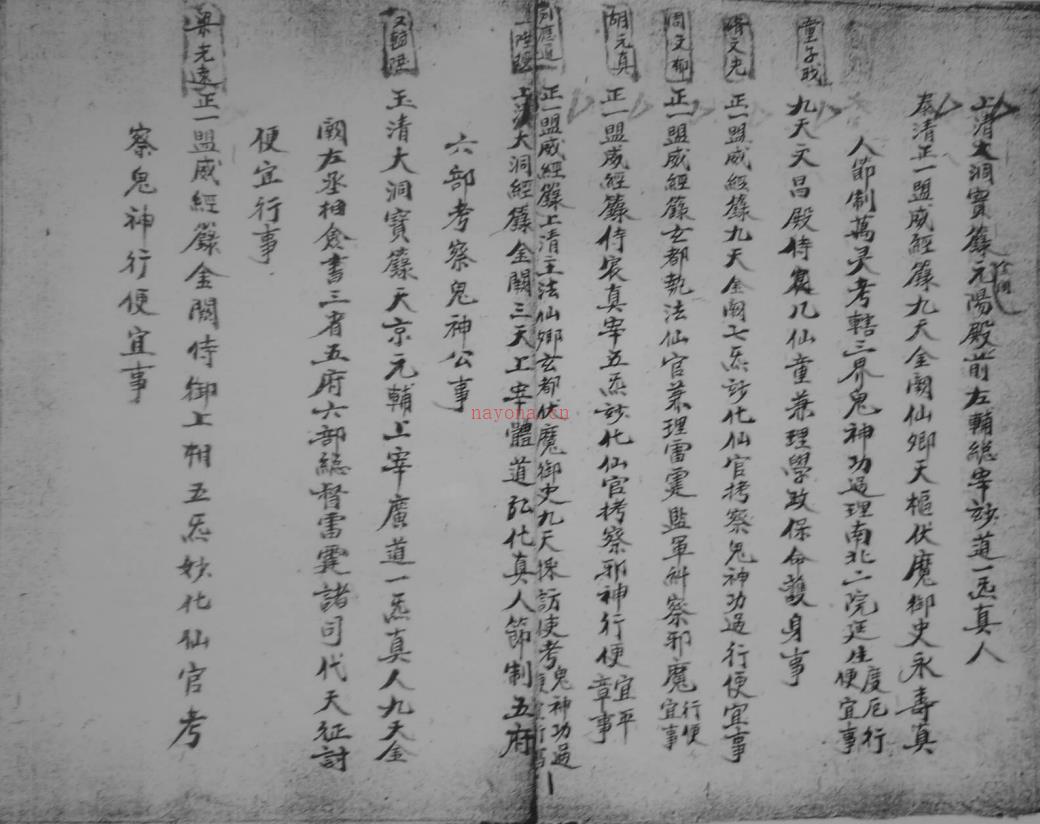 上清大洞寶籙元陽殿前左輔總宰妙道一炁真人
泰清正一盟威經籙九天金闕仙卿天樞伏魔御史永壽真
人節制萬灵考轄三界鬼神功過理南北二院延生度厄行便宜事
童子
九天文昌殿侍宸凡仙童兼理學政保命護身事
文光
正一盟威經籙九天金闕七炁妙化仙官考察鬼神功過行便宜事
周文郁
正一盟威經籙玄都執法仙官兼理雷霆監軍糾察邪魔行便宜事
胡元真
正一盟威經籙侍宸真宰五炁妙化仙官考察邪神行便宜平章事
應道
正一盟威經籙上清主法仙卿玄都伏魔御史九天採訪使考鬼神功過
一陸
上清大洞經籙金闕三天上宰體道弘化真人節制五府
六部考察鬼神公事
陸
玉清大洞寶籙天京元輔上宰廣道一炁真人九天金
闕左丞相僉書三省五府六部總督雷霆諸司代天征討
便宜行事
梁光遠
正一盟威經籙金闕侍御上相五炁妙化仙官考
察鬼神行便宜事
nayona.cn